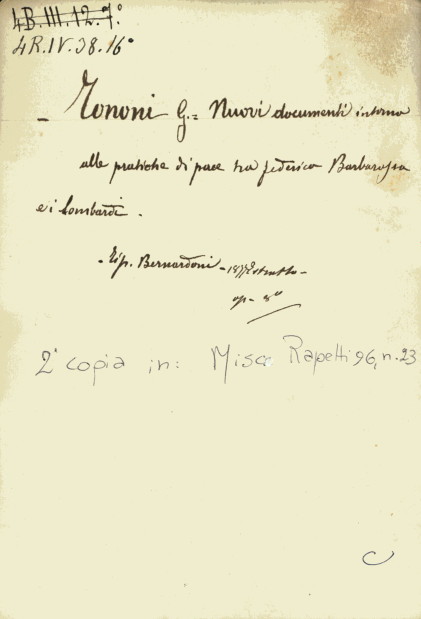 4B.III.12.7°
4R.IV.38.16°
- Tononi G= Nuovi documenti intorno
alle pratiche di pace tra federico Barbarossa
e i Lombardi.
- Tip. Bernardoni - 1877 Estratto -
op- 8°
2ª copia in: Misc Rapetti 96, n. 23